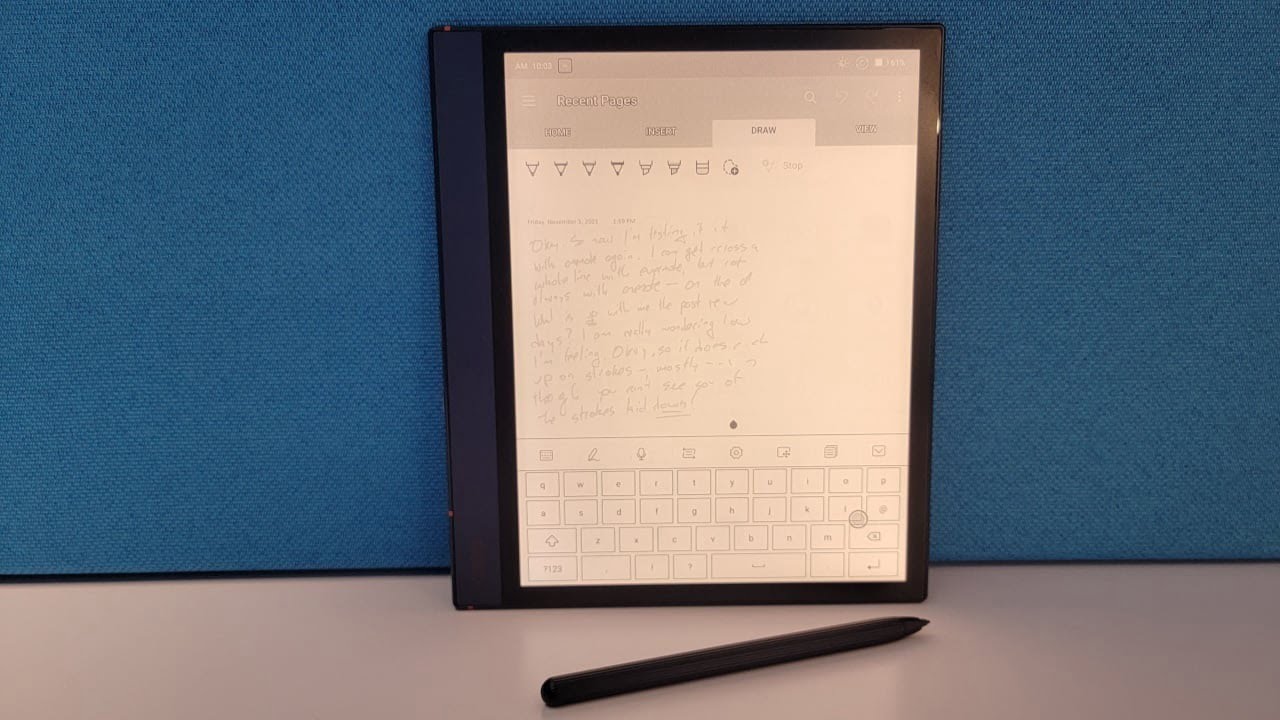 AM 10:03 61%
Recent Pages
HOME INSERT DRAW VIEW
Stop
Friday, November 5, 2021 1:59 PM
Okay so now I'm testing it
with onenote again. I can get across a
whole line with evernote, but not
always with onenote — on the
What is with me the past few
days? I am really wondering how
I'm feeling. Okay, so it does catch
up on strokes — mostly —
though you can't see you of
the strokes laid down
q w e r t y u i o p
a s d f g h j k l @
z x c v b n m
?123 , ! ?